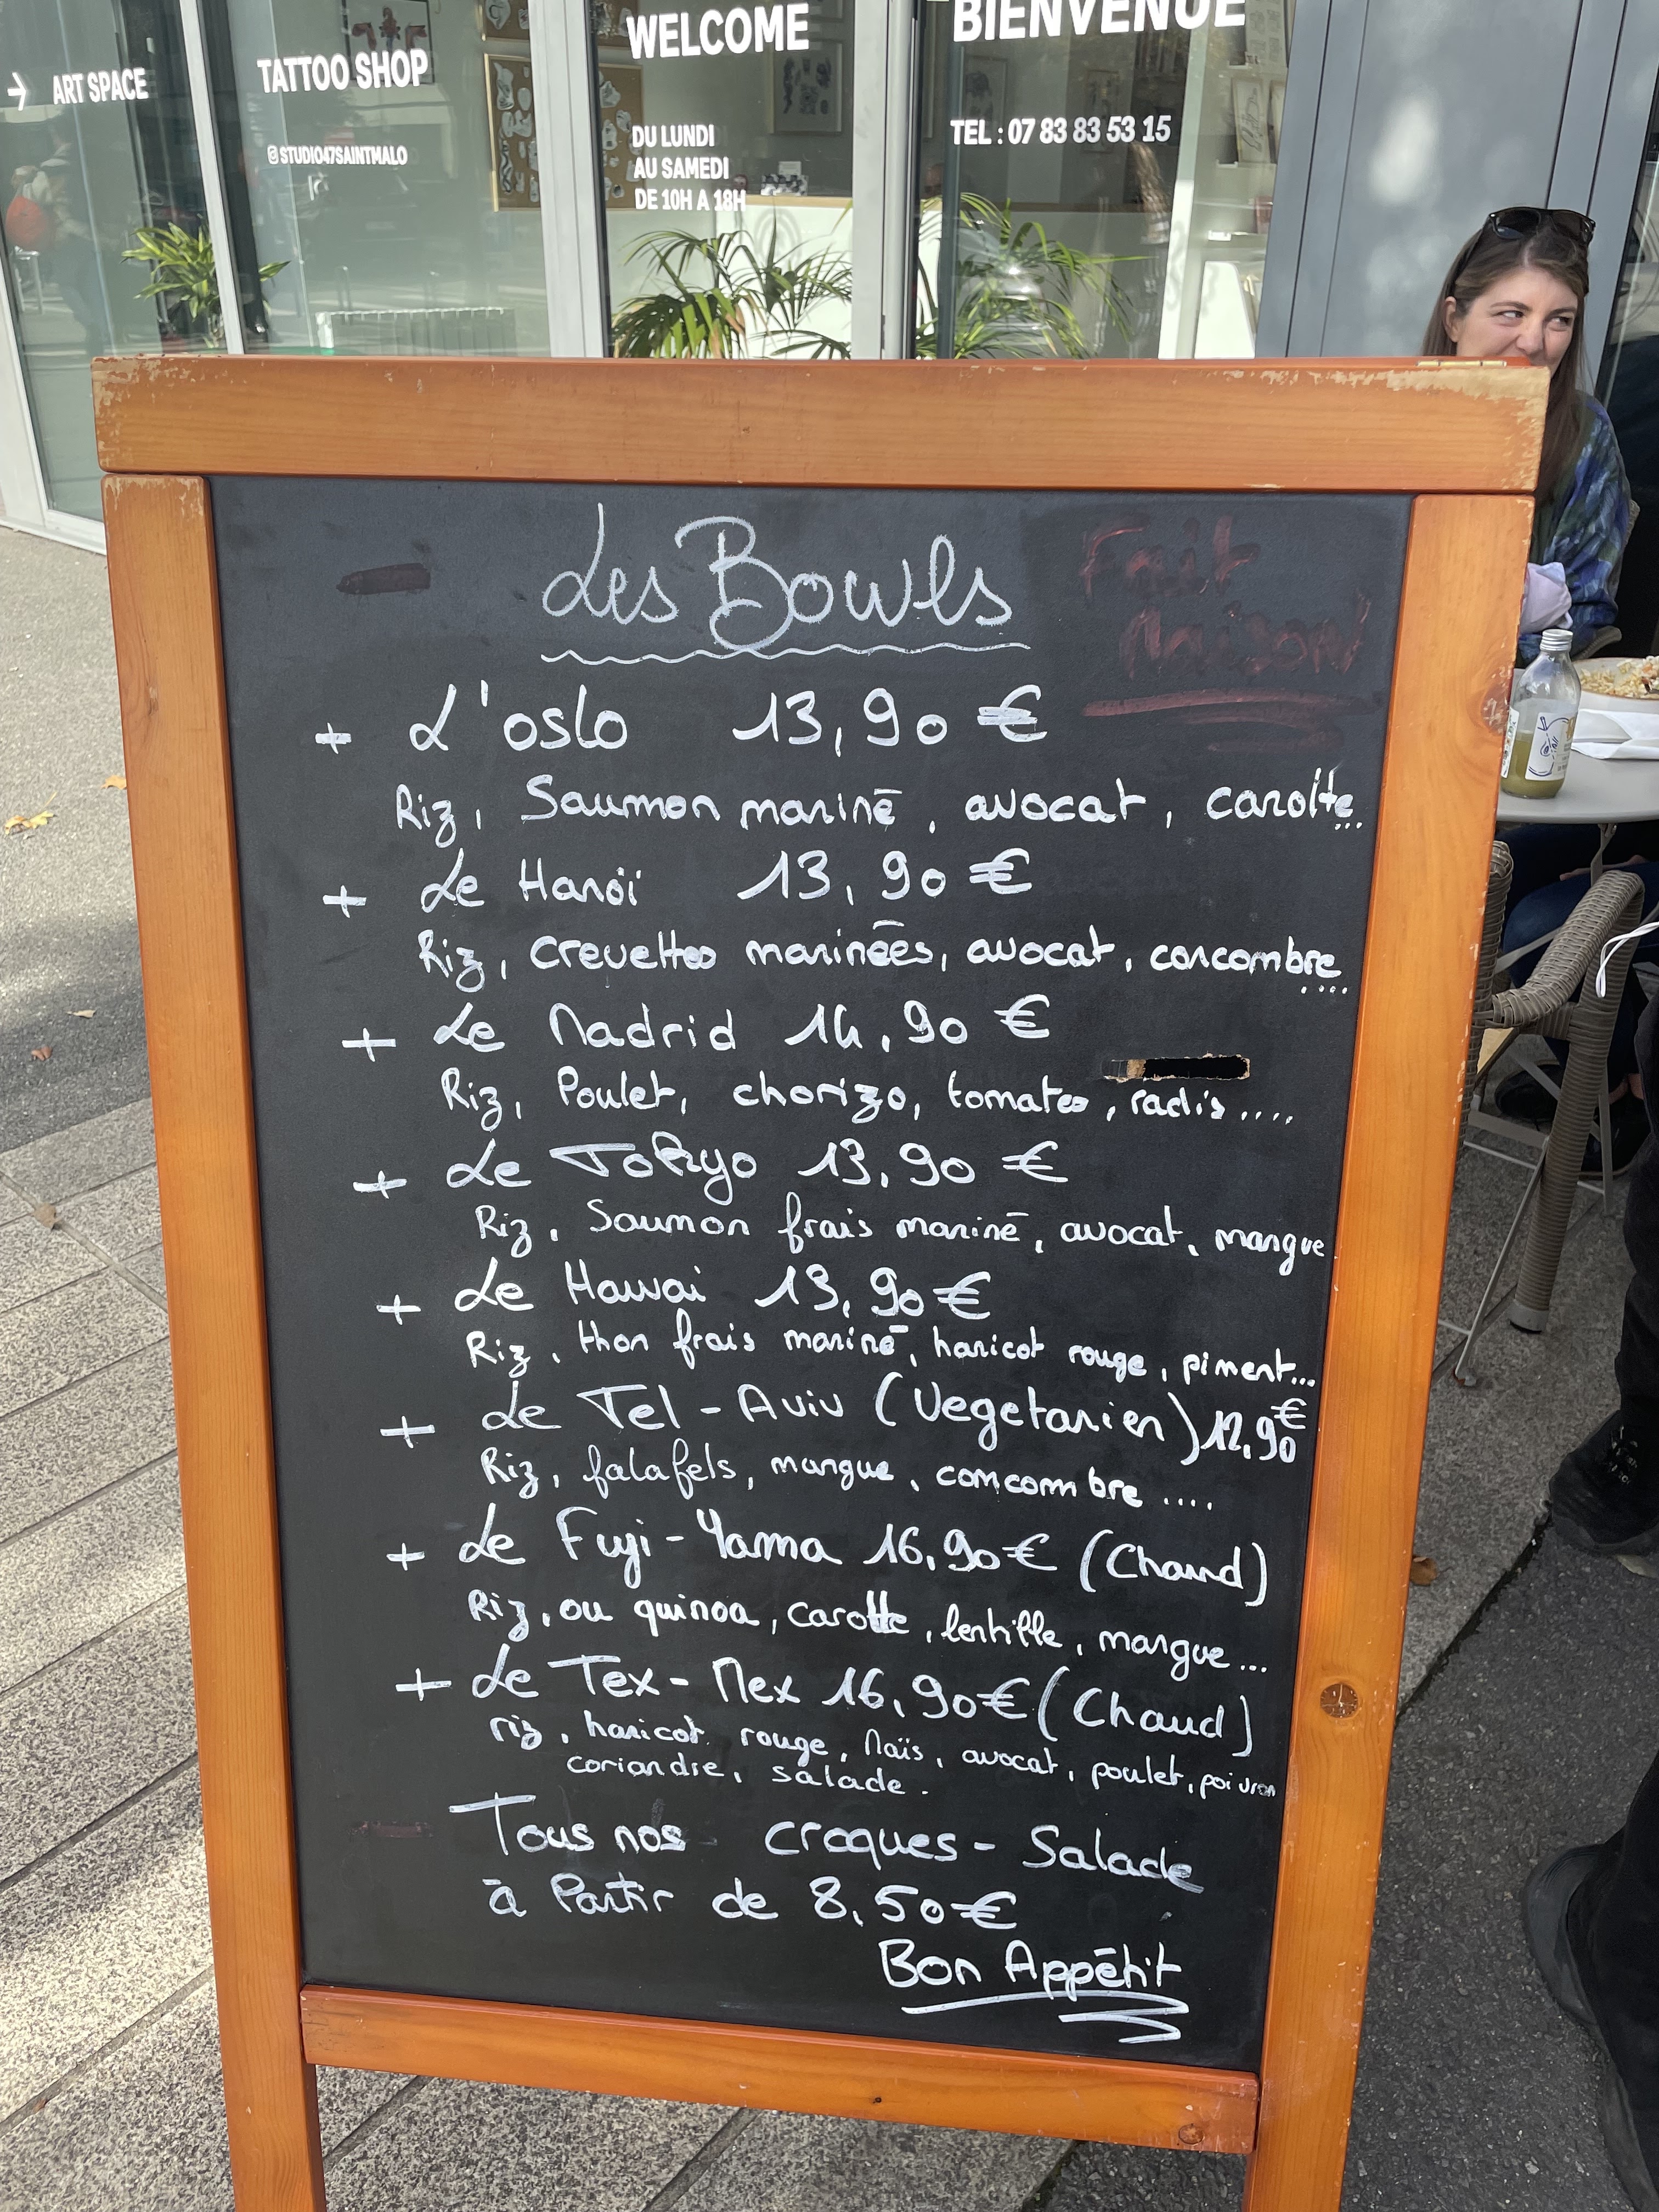 → ART SPACE
TATTOO SHOP
@STUDIO47SAINTMALO
WELCOME
DU LUNDI
AU SAMEDI
DE 10H A 18H
BIENVENUE
TEL : 07 83 83 53 15
Les Bowls
Fait
Maison
+ L'oslo 13,90 €
Riz, Saumon mariné, avocat, carotte...
+ Le Hanoï 13,90 €
Riz, crevettes marinées, avocat, concombre....
+ Le Madrid 14,90 €
Riz, Poulet, chorizo, tomates, radis....
+ Le Tokyo 13,90 €
Riz, Saumon frais mariné, avocat, mangue
+ Le Hawai 13,90 €
Riz, thon frais mariné, haricot rouge, piment...
+ Le Tel-Aviv (Vegetarien) 12,90 €
Riz, falafels, mangue, concombre ....
+ Le Fuji-Yama 16,90 € (Chaud)
Riz, ou quinoa, carotte, lentille, mangue...
+ Le Tex-Mex 16,90 € (Chaud)
riz, haricot rouge, Maïs, avocat, poulet, poivron
coriandre, salade.
Tous nos croques-Salade
à Partir de 8,50 €
Bon Appétit